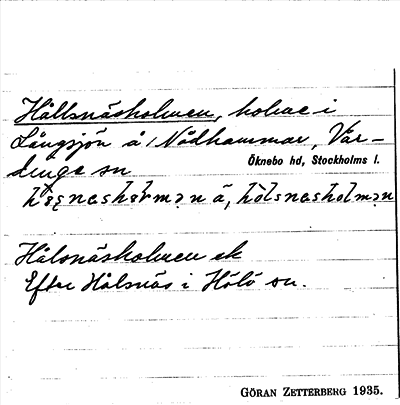 Hållsnäsholmen, holme i
Långsjön å Nådhammar, Vår-
dinge sn Öknebo hd, Stockholms l.
ä, hòlsnasholmən
Hålsnäsholmen ek
Efter Hålsnäs i Hölö sn.
GÖRAN ZETTERBERG 1935.